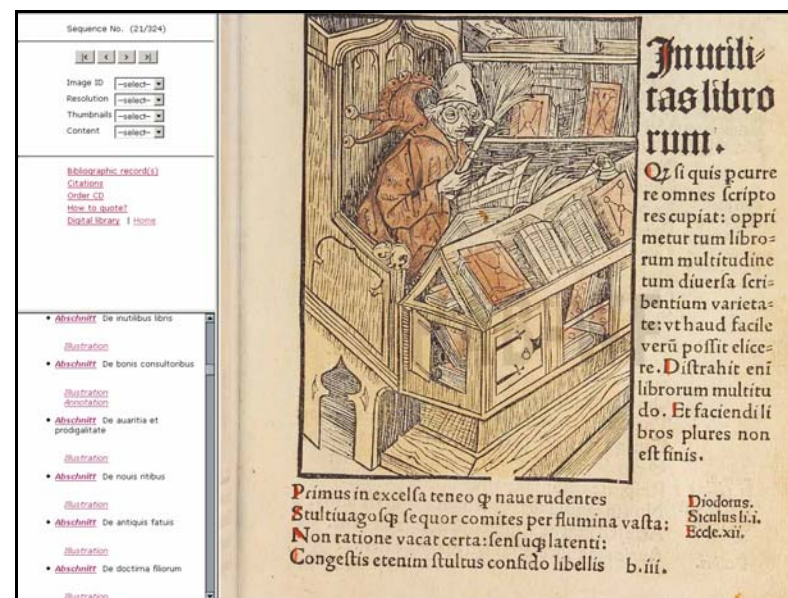 Sequence No. (21/324)
|< < > >|
Image ID --select--
Resolution --select--
Thumbnails --select--
Content --select--
Bibliographic record(s)
Citations
Order CD
How to quote?
Digital library | Home
Abschnitt De inutilibus libris
Illustration
Abschnitt De bonis consultoribus
Illustration
Annotation
Abschnitt De auaritia et
prodigalitate
Illustration
Abschnitt De nouis ritibus
Illustration
Abschnitt De antiquis fatuis
Illustration
Abschnitt De doctrina filiorum
Illustration
Inutili⸗
tas libro
rum.
Qꝫ ſi quis ꝑcurre
re omnes ſcripto
res cupiat: oppri
metur tum libro⸗
rum multitudine
tum diuerſa ſcri⸗
bentium varieta⸗
te: vt haud facile
verū poſſit elice⸗
re. Diſtrahit eni
librorum multitu
do. Et faciendi li
bros plures non
eſt finis.
Primus in excelſa teneo ꝙ naue rudentes
Stultiuagoſqꝫ ſequor comites per flumina vaſta:
Non ratione vacat certa: ſenſuqꝫ latenti:
Congeſtis etenim ſtultus confido libellis b.iii.
Diodorus.
Siculus li.i.
Eccle.xii.